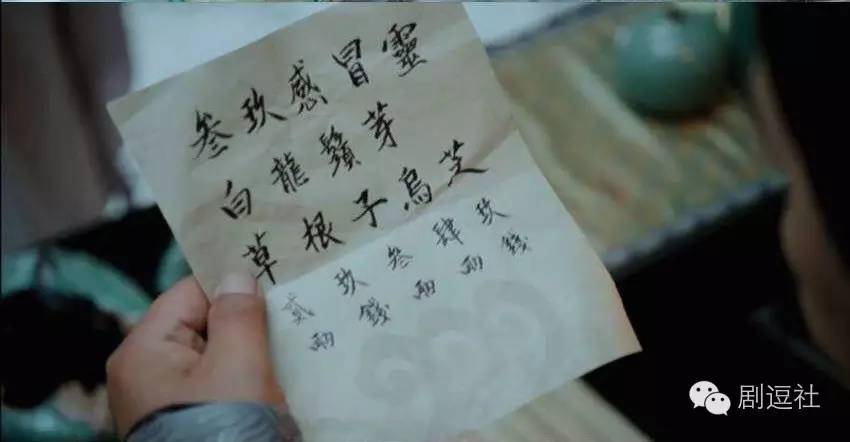 叁玖感冒靈
白龍鬚芽
草根子烏芝
貳玖叁肆玖
兩錢兩兩錢
剧逗社